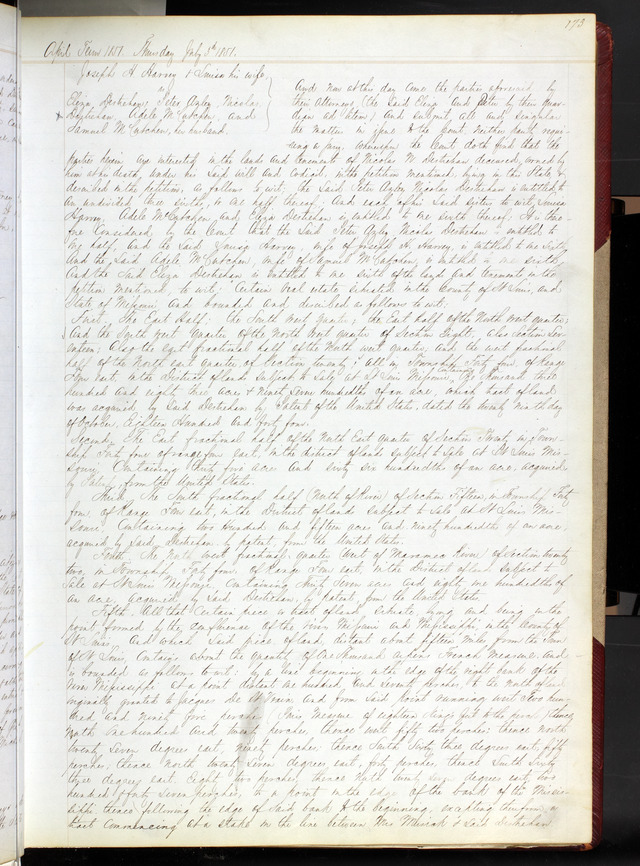 173
April Term 1851. Thursday July 3d 1851.
Joseph H Harvey & Louisa his wife
vs
Eliza Derbishen, Peter Nicolas
Derbishen Adele McCutchen, and
Samuel McCutchen, her husband
And now at this day come the parties aforesaid by
their attornies, (the said Eliza and Peter by their guar-
dian ad litem) and submit all and singular
the matters in of the Court, neither party requi-
ring a jury. Whereupon the Court doth find that the
parties herein are interested in the lands and tenements of Nicolas W Derbishen deceased, owned by
him at his death, under his last will and codicil, in the petition mentioned, lying in this State &
described in the petition, as follows to wit, the said Peter Nicolas Derbishen is entitled to
an undivided one sixth, to one half thereof, and each of his said sisters to wit, Louisa
Harvey, Adele McCutchen, and Eliza Derbishen is entitled to one sixth thereof. It is there-
fore Considered by the Court that the said Peter Nicolas Derbishen is entitled to
one half and the said Louisa Harvey, wife of Joseph H. Harvey, is entitled to one sixth
and the said Adele McCutchen, wife of Samuel McCutchen, is entitled to one sixth
And the said Eliza Derbishen is entitled to one sixth of the lands and tenements in the
petition mentioned, to wit; Certain real estate situated in the County of St Louis, and
State of Missouri and bounded and described as follows to wit:
First The East Half, the South West quarter, the East half of the North West quarter,
and the South West quarter of the North West quarter of Section Eight, also section Sev-
enteen. Also the east fractional half of the North west quarter and the west fractional
half of the North east quarter of Section twenty, all in Township Forty four, of Range
Four east, in the District of lands subject to sale at St Louis Missouri, Containing One thousand three
hundred and eighty three acres & ninety seven hundredths of an acre, which tract of land
was acquired by said Derbishen by Patent of the United States, dated the twenty ninth day
of October, Eighteen Hundred and forty four.
Second, The East fractional half of the North East quarter of Section Twenty in Town-
ship Forty four of range four east, in the district of lands subject to sale at St Louis Mis-
souri, Containing thirty five acres and sixty six hundredths of an acre, acquired
by Patent, from the United States.
Third The South fractional half (North of River) of Section Fifteen, in Township Forty
four, of Range Four east, in the District of lands subject to sale at St Louis Mis-
souri Containing two hundred and fifteen acres and ninety hundredths of an acre,
acquired by said Derbishen by patent from the United States.
Fourth The North west fractional quarter (West of Maramec River) of Section twenty
two, in Township Forty four, of Range Four east, in the District of land subject to
sale at St Louis Missouri, Containing thirty seven acres and eighty one hundredths of
an acre, acquired by said Derbishen, by patent from the United States.
Fifth All that Certain piece or tract of land situate, lying and being in the
point formed by the confluence of the rivers Missouri and Mississippi, in the County of
St Louis, and which said piece of land, distant about fifteen miles, from the Town
of St Louis, Contains about the quantity of One thousand arpens French Measure, and
is bounded as follows to wit: by a line beginning in the edge of the right bank of the
river Mississippi at a point distant one hundred and seventy perches, to the South of land
originally granted to Jacques De St Vrain and from said point running west Two hun-
dred and ninety five perches (Paris measure of eighteen feet to the perch) thence
North One hundred and twenty perches, thence west fifty two perches; thence north
twenty seven degrees east, ninety perches; thence South Sixty three degrees east, fifty
perches; thence North twenty seven degrees east, forty perches, thence South Sixty
three degrees east, Eight two perches, thence North twenty seven degrees east, two
hundred forty seven perches, to a point in the edge of the bank of the Missis-
sippi thence following the edge of said bank to the beginning, excepting therefrom a
tract commencing at a stake in the line between and said Derbishen